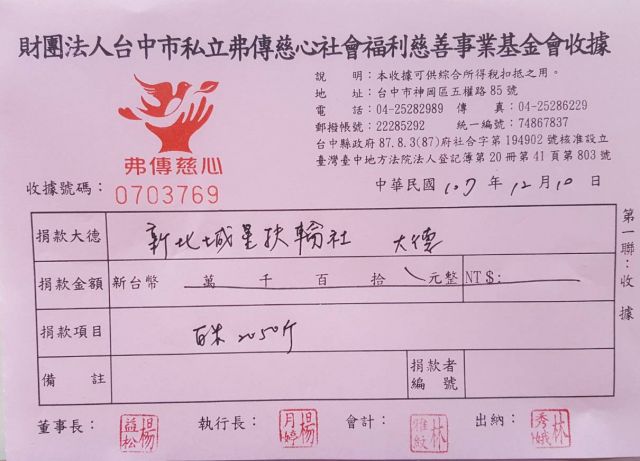 財團法人台中市私立弗傳慈心社會福利慈善事業基金會收據
說 明：本收據可供綜合所得稅扣抵之用。
地 址：台中市神岡區五權路85號
電 話：04-25282989 傳 真：04-25286229
郵撥帳號：22285292 統一編號：74867837
台中縣政府87.8.3(87)府社合字第194902號核准設立
臺灣臺中地方法院法人登記簿第20冊第41頁第803號
弗傳慈心
收據號碼：0703769
中華民國107年12月10日
捐款大德 新北城星扶輪社 大德
捐款金額 新台幣 萬 千 百 拾 元整 NT$:
捐款項目 白米2050斤
備 註 捐款者編號
第一聯：收據
董事長：楊益松 執行長：楊月婷 會計：林雅紋 出納：林秀娥